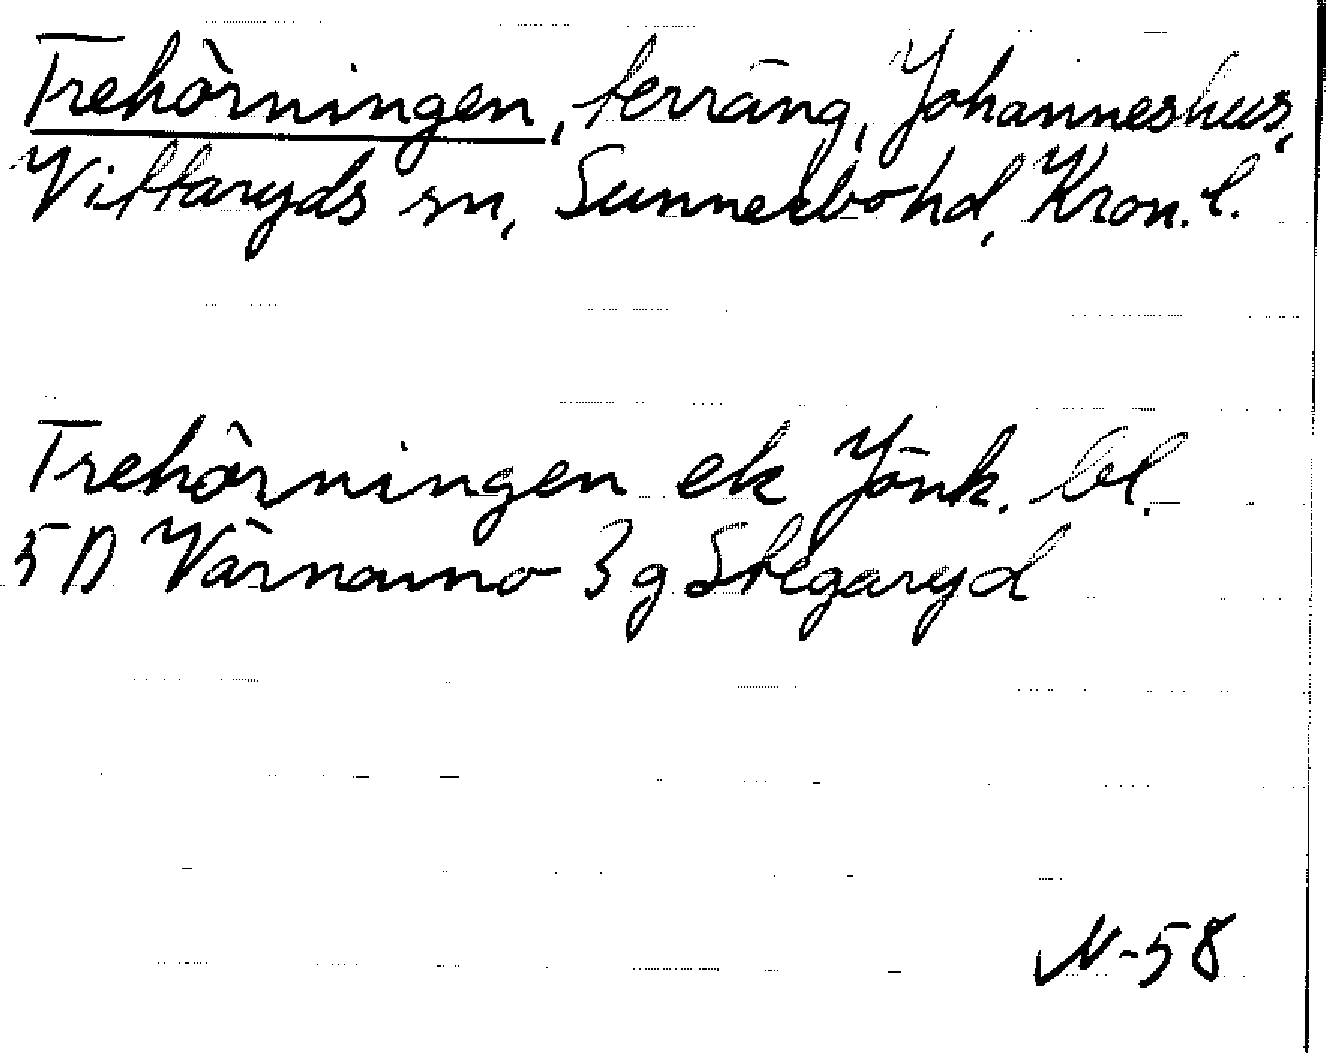 Trehörningen, terräng, Johanneshus,
Vittaryds sn, Sunnerbo hd, Kron. l.
Trehörningen ek Jönk. bl.
5D Värnamo 3g Skegaryd
N-58